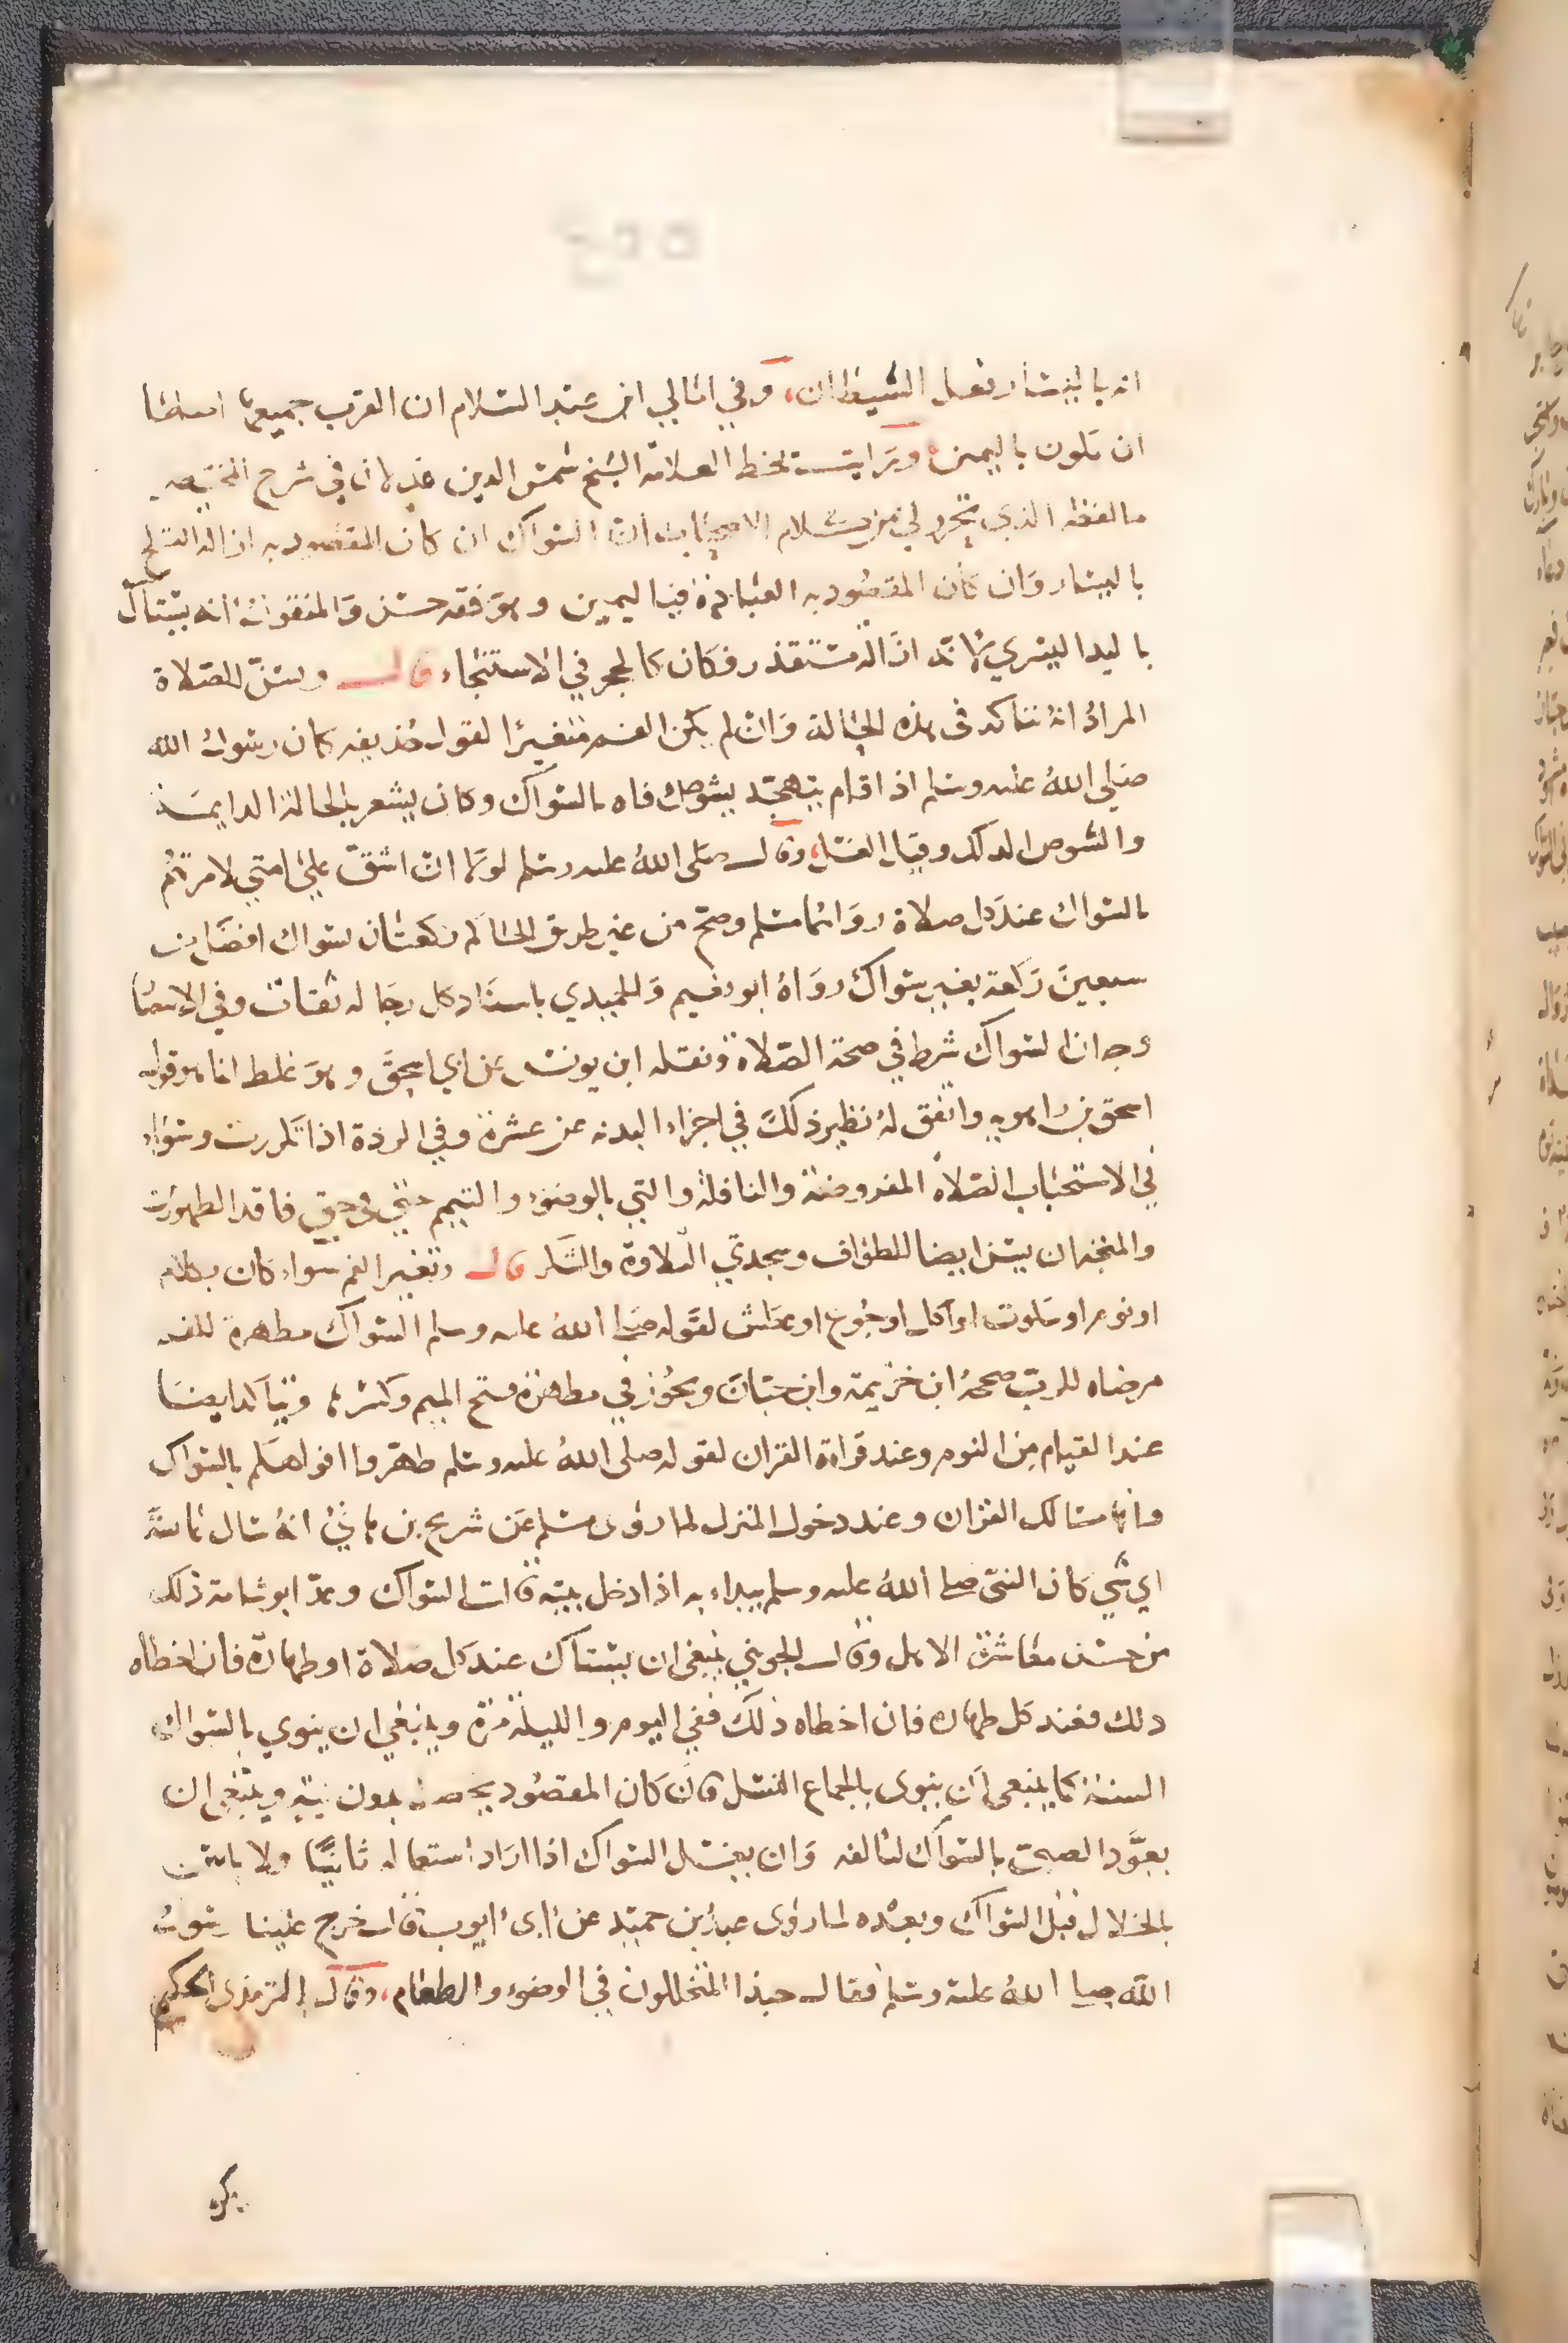 انه باليسار نفعل الشيطان، وفي امالي ابن عبد السلام ان القرب جميعها
ان تكون باليمين ورايت بخط العلامه الشيخ شمس الدين في شرح
ما لفظه الذي تحرر لي من كلام الاصحاب ان السواك ان كان المقصود به ازاله القلح
باليسار وان كان المقصود به العبادة فباليمين وهو فقه حسن والمنقول انه يستاك
باليد اليسري لانه ازاله مستقذر فكان كالحجر في الاستنجاء قال ويسن للصلاة
المراد انه تتاكد في هذه الحالة وان لم يكن الفم متغيرا لقول حذيفه كان رسول الله
صلي الله عليه وسلم اذا قام يتهجد يشوص فاه بالسواك وكان يشعر بالحالة الدايمة
والشوص الدلك وقيل الغسل، وقال صلى الله عليه وسلم لولا ان اشق علي امتي لامرتهم
بالسواك عند كل صلاة رواهما مسلم وصح من غير طريق الحاكم ركعتان بسواك افضل من
سبعين ركعة بغير سواك رواه ابو نعيم والحميدي باسناد كل رجاله ثقات وفي
وجه ان السواك شرط في صحة الصلاة ونقله ابن يونس عن ابي اسحق وهو غلط انما هو قول
اسحق بن راهويه واتفق له نظير ذلك في اجزاء البدنه عن عشرة وفي الردة اذا تكررت وسواء
في الاستحباب الصلاة المفروضة والنافلة والتي بالوضوء والتيمم حتي في حق فاقد الطهورين
والمتجه ان يسن ايضا للطواف وسجدتي التلاوة والشكر قال وتغير الفم سواء كان بكلام
او نوم او سكوت او اكل او جوع او عطش لقوله صلي الله عليه وسلم السواك مطهرة للفم
مرضاه للرب صححه ابن خزيمة وابن حبان ويجوز في مطهرة فتح الميم وكسرها ويتاكد ايضا
عند القيام من النوم وعند قراءة القران لقوله صلى الله عليه وسلم طهروا افواهكم بالسواك
فانها مسالك القران وعند دخول المنزل لما روى مسلم عن شريح بن هاني انه سال عايشة
اي شي كان النبي صلى الله عليه وسلم يبداء به اذا دخل بيته قالت السواك وعد ابو شامة ذلك
من حسن معاشرة الاهل وقال الجويني ينبغي ان يستاك عند كل صلاة او طهارة فان اخطاه
ذلك فعند كل طهارة فان اخطاه ذلك ففي اليوم والليلة مرة وينبغي ان ينوي بالسواك
السنة كما ينبغي ان ينوي بالجماع النسل وان كان المقصود يحصل بدون نية وينبغي ان
يعود الصبي بالسواك ليالفه وان يغسل السواك اذا اراد استعماله ثانيا ولا باس
بالخلال قبل السواك وبعده لما روى عبد بن حميد عن ابي ايوب قال خرج علينا رسول
الله صلى الله عليه وسلم فقال حبذا المتخللون في الوضوء والطعام، وقال الترمذي الحكيم
يكره